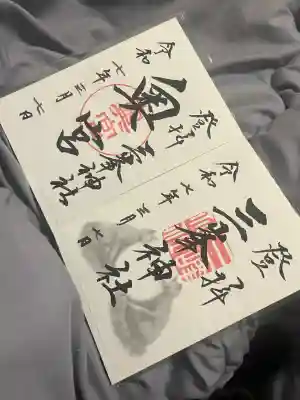 登拝
三峯神社
奥宮
令和七年三月七日
登拝
三峯神社
令和七年三月七日